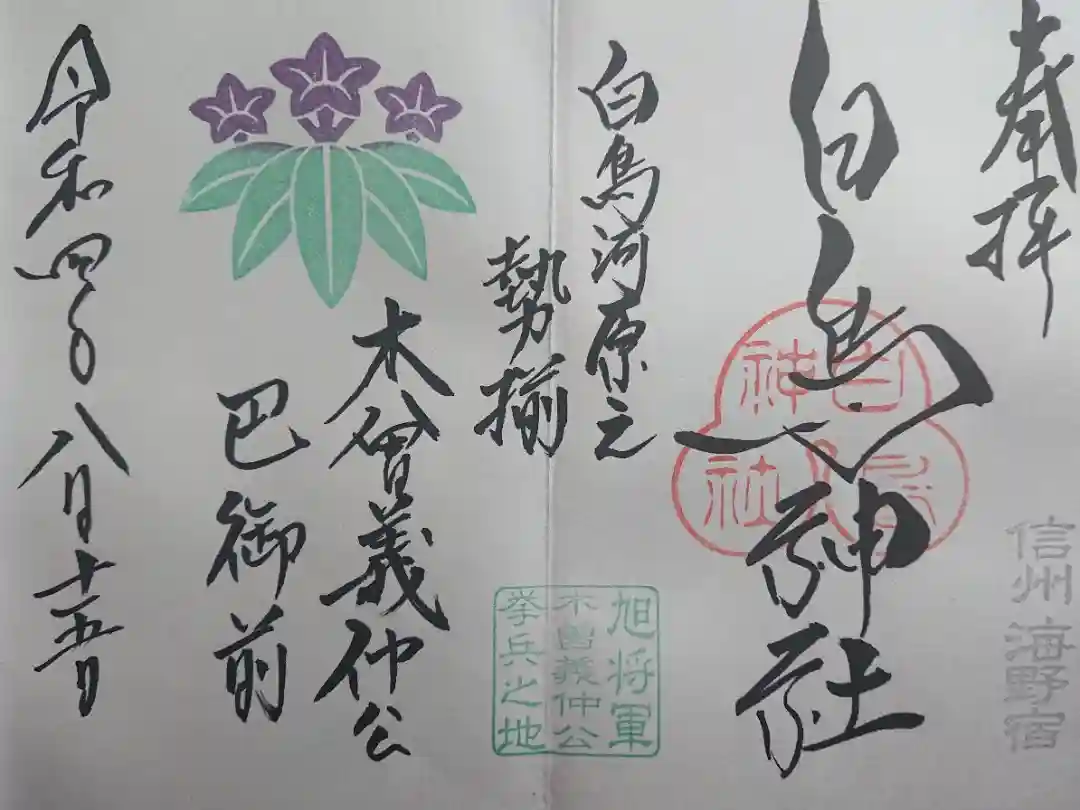 奉拝
信州 海野宿
白鳥神社
白鳥神社
白鳥河原元
勢揃
旭将軍
木曽義仲公
挙兵之地
木曽義仲公
巴御前
令和四年八月十五日